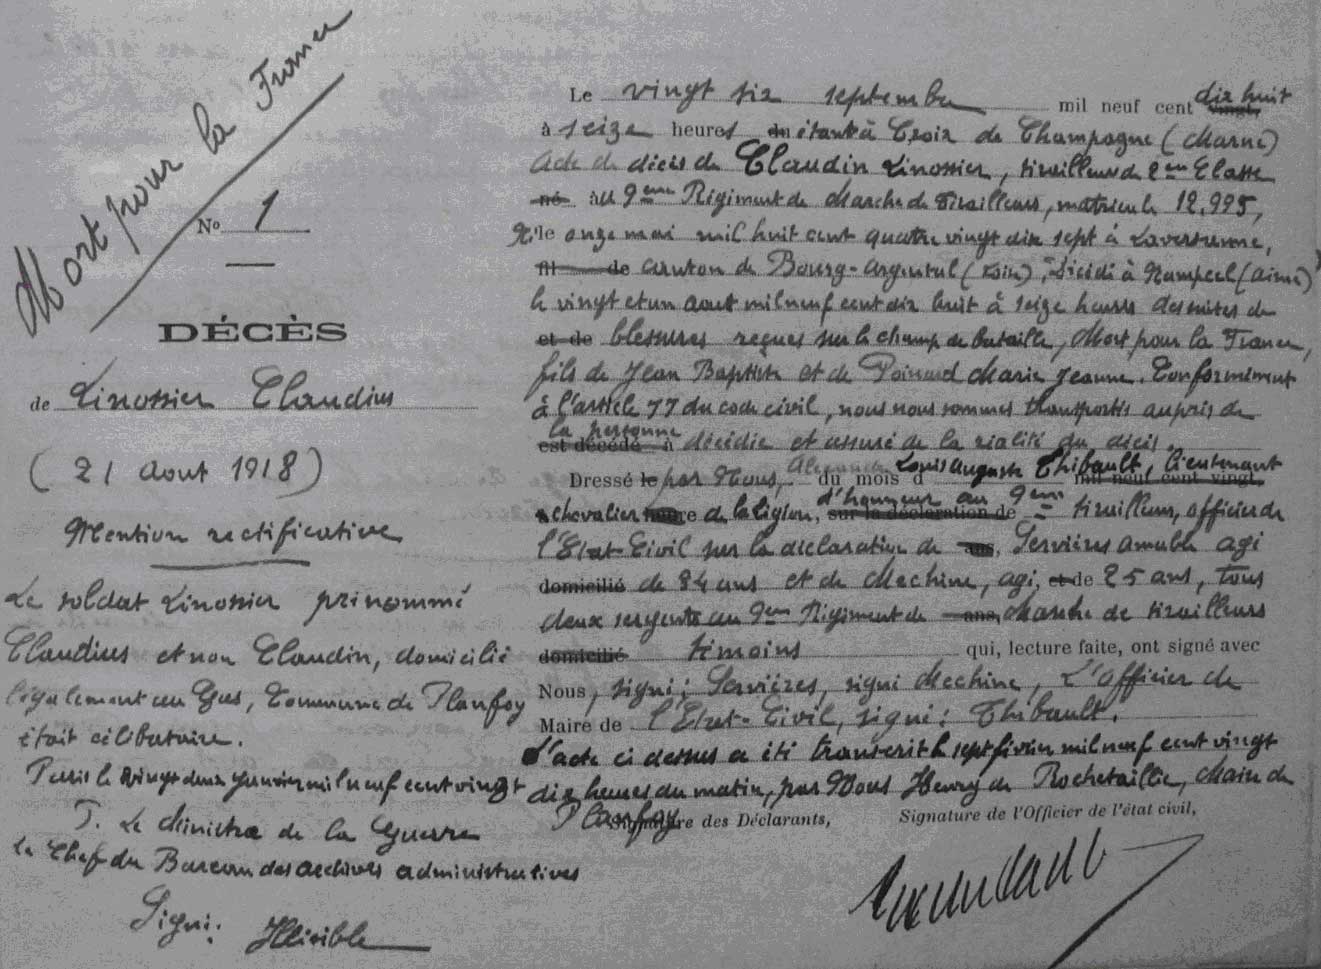 Mort pour la France
No 1
DÉCÈS
de Linossier Claudius
(21 Aout 1918)
Mention rectificative
Le soldat Linossier prénommé
Claudius et non Claudin, domicilié
légalement au Gus, Commune de Planfoy
était célibataire.
Paris le vingt deux janvier mil neuf cent vingt
P. Le Ministre de la Guerre
Le Chef du Bureau des archives administratives
Signé: Illisible
Le vingt six septembre mil neuf cent dix huit
à seize heures étant à Croix de Champagne (Marne)
Acte de décès de Claudin Linossier, tirailleur de 2eme Classe
né au 9eme Régiment de Marche de Tirailleurs, matricule 12.995,
Né le onze mai mil huit cent quatre vingt dix sept à Laversanne,
fil de canton de Bourg-Argental (Loire), décédé à Nampcel (Aisne)
le vingt et un aout mil neuf cent dix huit à seize heures des suites de
et de blessures reçues sur le champ de bataille, Mort pour la France,
fils de Jean Baptiste et de Poinard Marie Jeanne. Conformément
à l'article 77 du code civil, nous nous sommes transportés auprès de
la personne
est décédé à décédée et assuré de la réalité du décès.
Dressé le par Nous, Alexandre Louis Auguste Thibault, lieutenant
du mois d mil neuf cent vingt,
à chevalier heure de la légion, d'honneur au 9eme tirailleurs, officier de
sur la déclaration de
l'Etat-Civil sur la déclaration de ans, Servières Amable agé
domicilié de 24 ans et de Mechine, agé, et de 25 ans, tous
deux sergents au 9eme Régiment de ans, Marche de tirailleurs
domicilié témoins qui, lecture faite, ont signé avec
Nous, signé: Servières, signé Mechine, L'officier de
Maire de l'Etat-Civil, signé: Thibault.
L'acte ci dessus a été transcrit le sept février mil neuf cent vingt
dix heures du matin, par Nous Henry de Rochetaillée, Maire de
Planfoy
Signature des Déclarants, Signature de l'Officier de l'état civil,